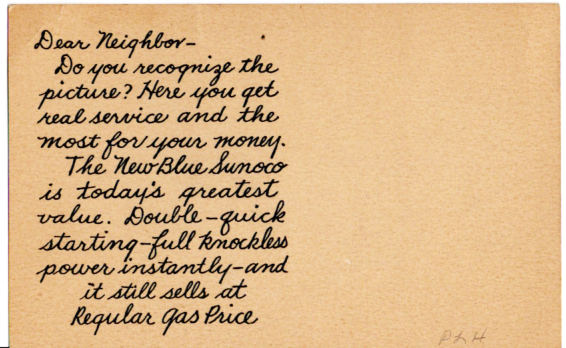 Dear Neighbor-
Do you recognize the
picture? Here you get
real service and the
most for your money.
The New Blue Sunoco
is today's greatest
value. Double-quick
starting-full knockless
power instantly-and
it still sells at
Regular Gas Price